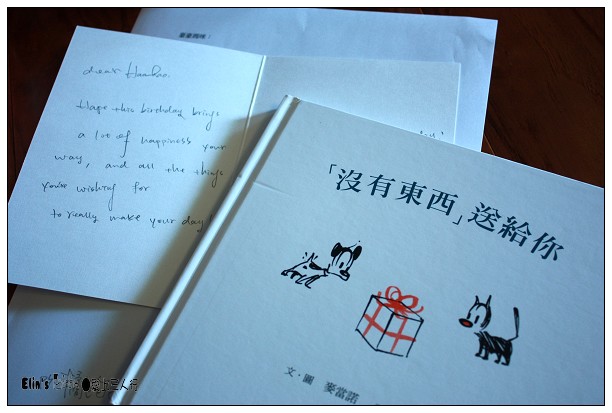 dear
Hope this birthday brings
a lot of happiness your
way, and all the things
you're wishing for
to really make your day
「沒有東西」送給你
文・圖 麥當諾
Elin's